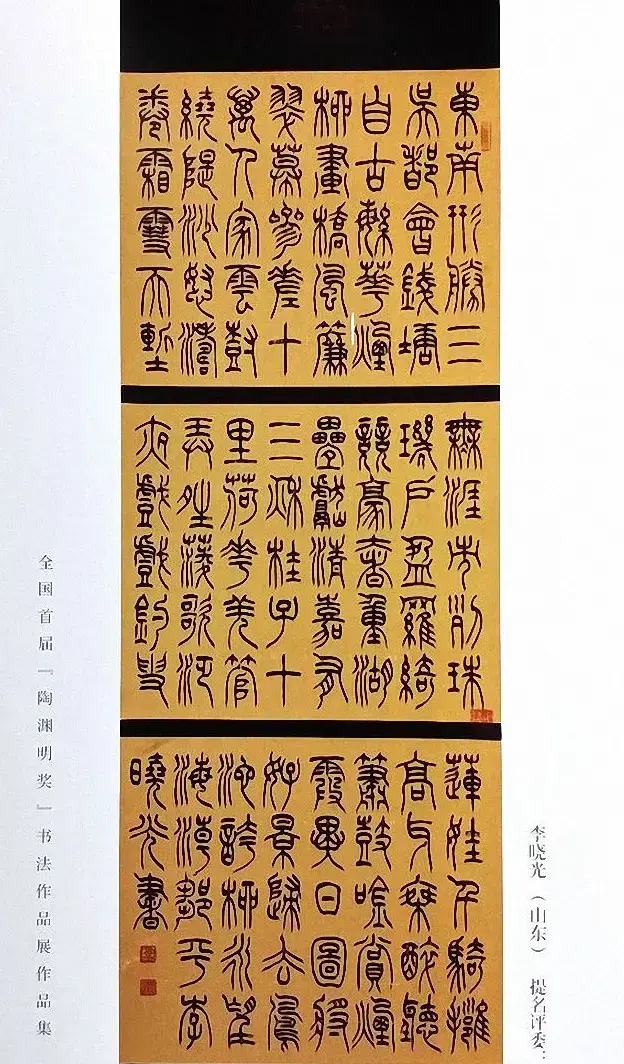 東南形勝三
吳都會錢塘
自古繁華煙
柳畫橋風簾
翠幕參差十
萬人家雲樹
繞隄沙怒濤
卷霜雪天塹
無涯市列珠
璣戶盈羅綺
競豪奢重湖
疊巘清嘉有
三秋桂子十
里荷花羌管
弄晴菱歌泛
夜戲戲釣叟
蓮娃千騎擁
高牙乘醉聽
簫鼓吟賞煙
霞異日圖將
好景歸去鳳
池誇柳永望
海潮鄒平李
曉光書
李晓光（山东） 提名评委：
全国首届『陶渊明奖』书法作品展作品集